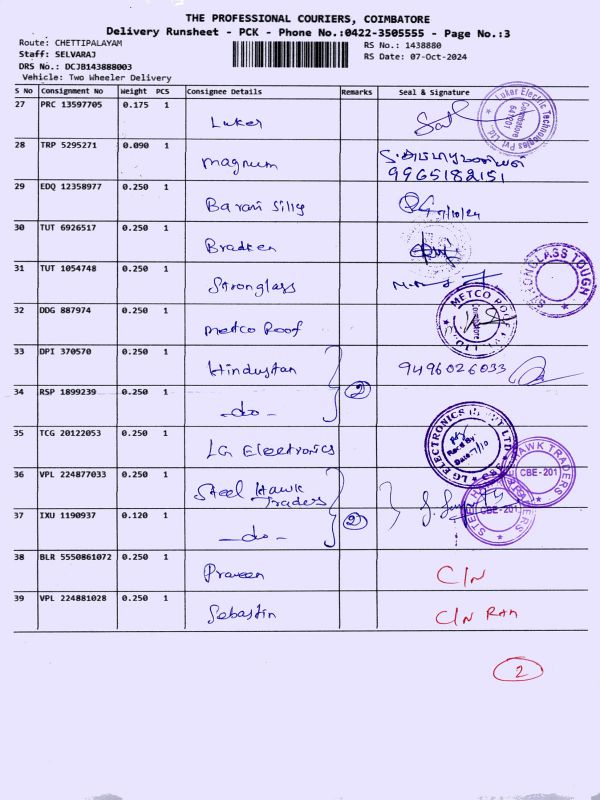 THE PROFESSIONAL COURIERS, COIMBATORE
Delivery Runsheet - PCK - Phone No.:0422-3505555 - Page No.:3
Route: CHETTIPALAYAM
RS No.: 1438880
Staff: SELVARAJ
RS Date: 07-Oct-2024
DRS No.: DCJB143888003
Vehicle: Two Wheeler Delivery
S No Consignment No Weight PCS Consignee Details Remarks Seal & Signature
27 PRC 13597705 0.175 1 Luker
Luker Electric Technologies Pvt. Ltd. Coimbatore 641201
28 TRP 5295271 0.090 1 Magnum
9965182151
29 EDQ 12358977 0.250 1 Barani Silig 7/10/24
30 TUT 6926517 0.250 1 Bradken
31 TUT 1054748 0.250 1 Stronglass
STRONGLASS TOUGH
32 DDG 887974 0.250 1 Metco Roof
METCO ROOF
33 DPI 370570 0.250 1 Hindustan 9496026033
34 RSP 1899239 0.250 1 -do- 2
35 TCG 20122053 0.250 1 LG Electronics
LG ELECTRONICS PVT LTD
36 VPL 224877033 0.250 1 Steel Hawk Traders
STEEL HAWK TRADERS CBE-201
37 IXU 1190937 0.120 1 -do- 2
STEEL HAWK TRADERS CBE-201
38 BLR 5550861072 0.250 1 Praveen C/N
39 VPL 224881028 0.250 1 Sebastin C/N RAM
2